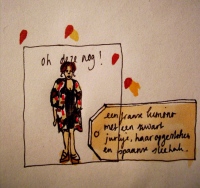 oh deze nog!
een franse kimono
met een zwart
jurkje, haar opgestoken
en spaanse sleehak.